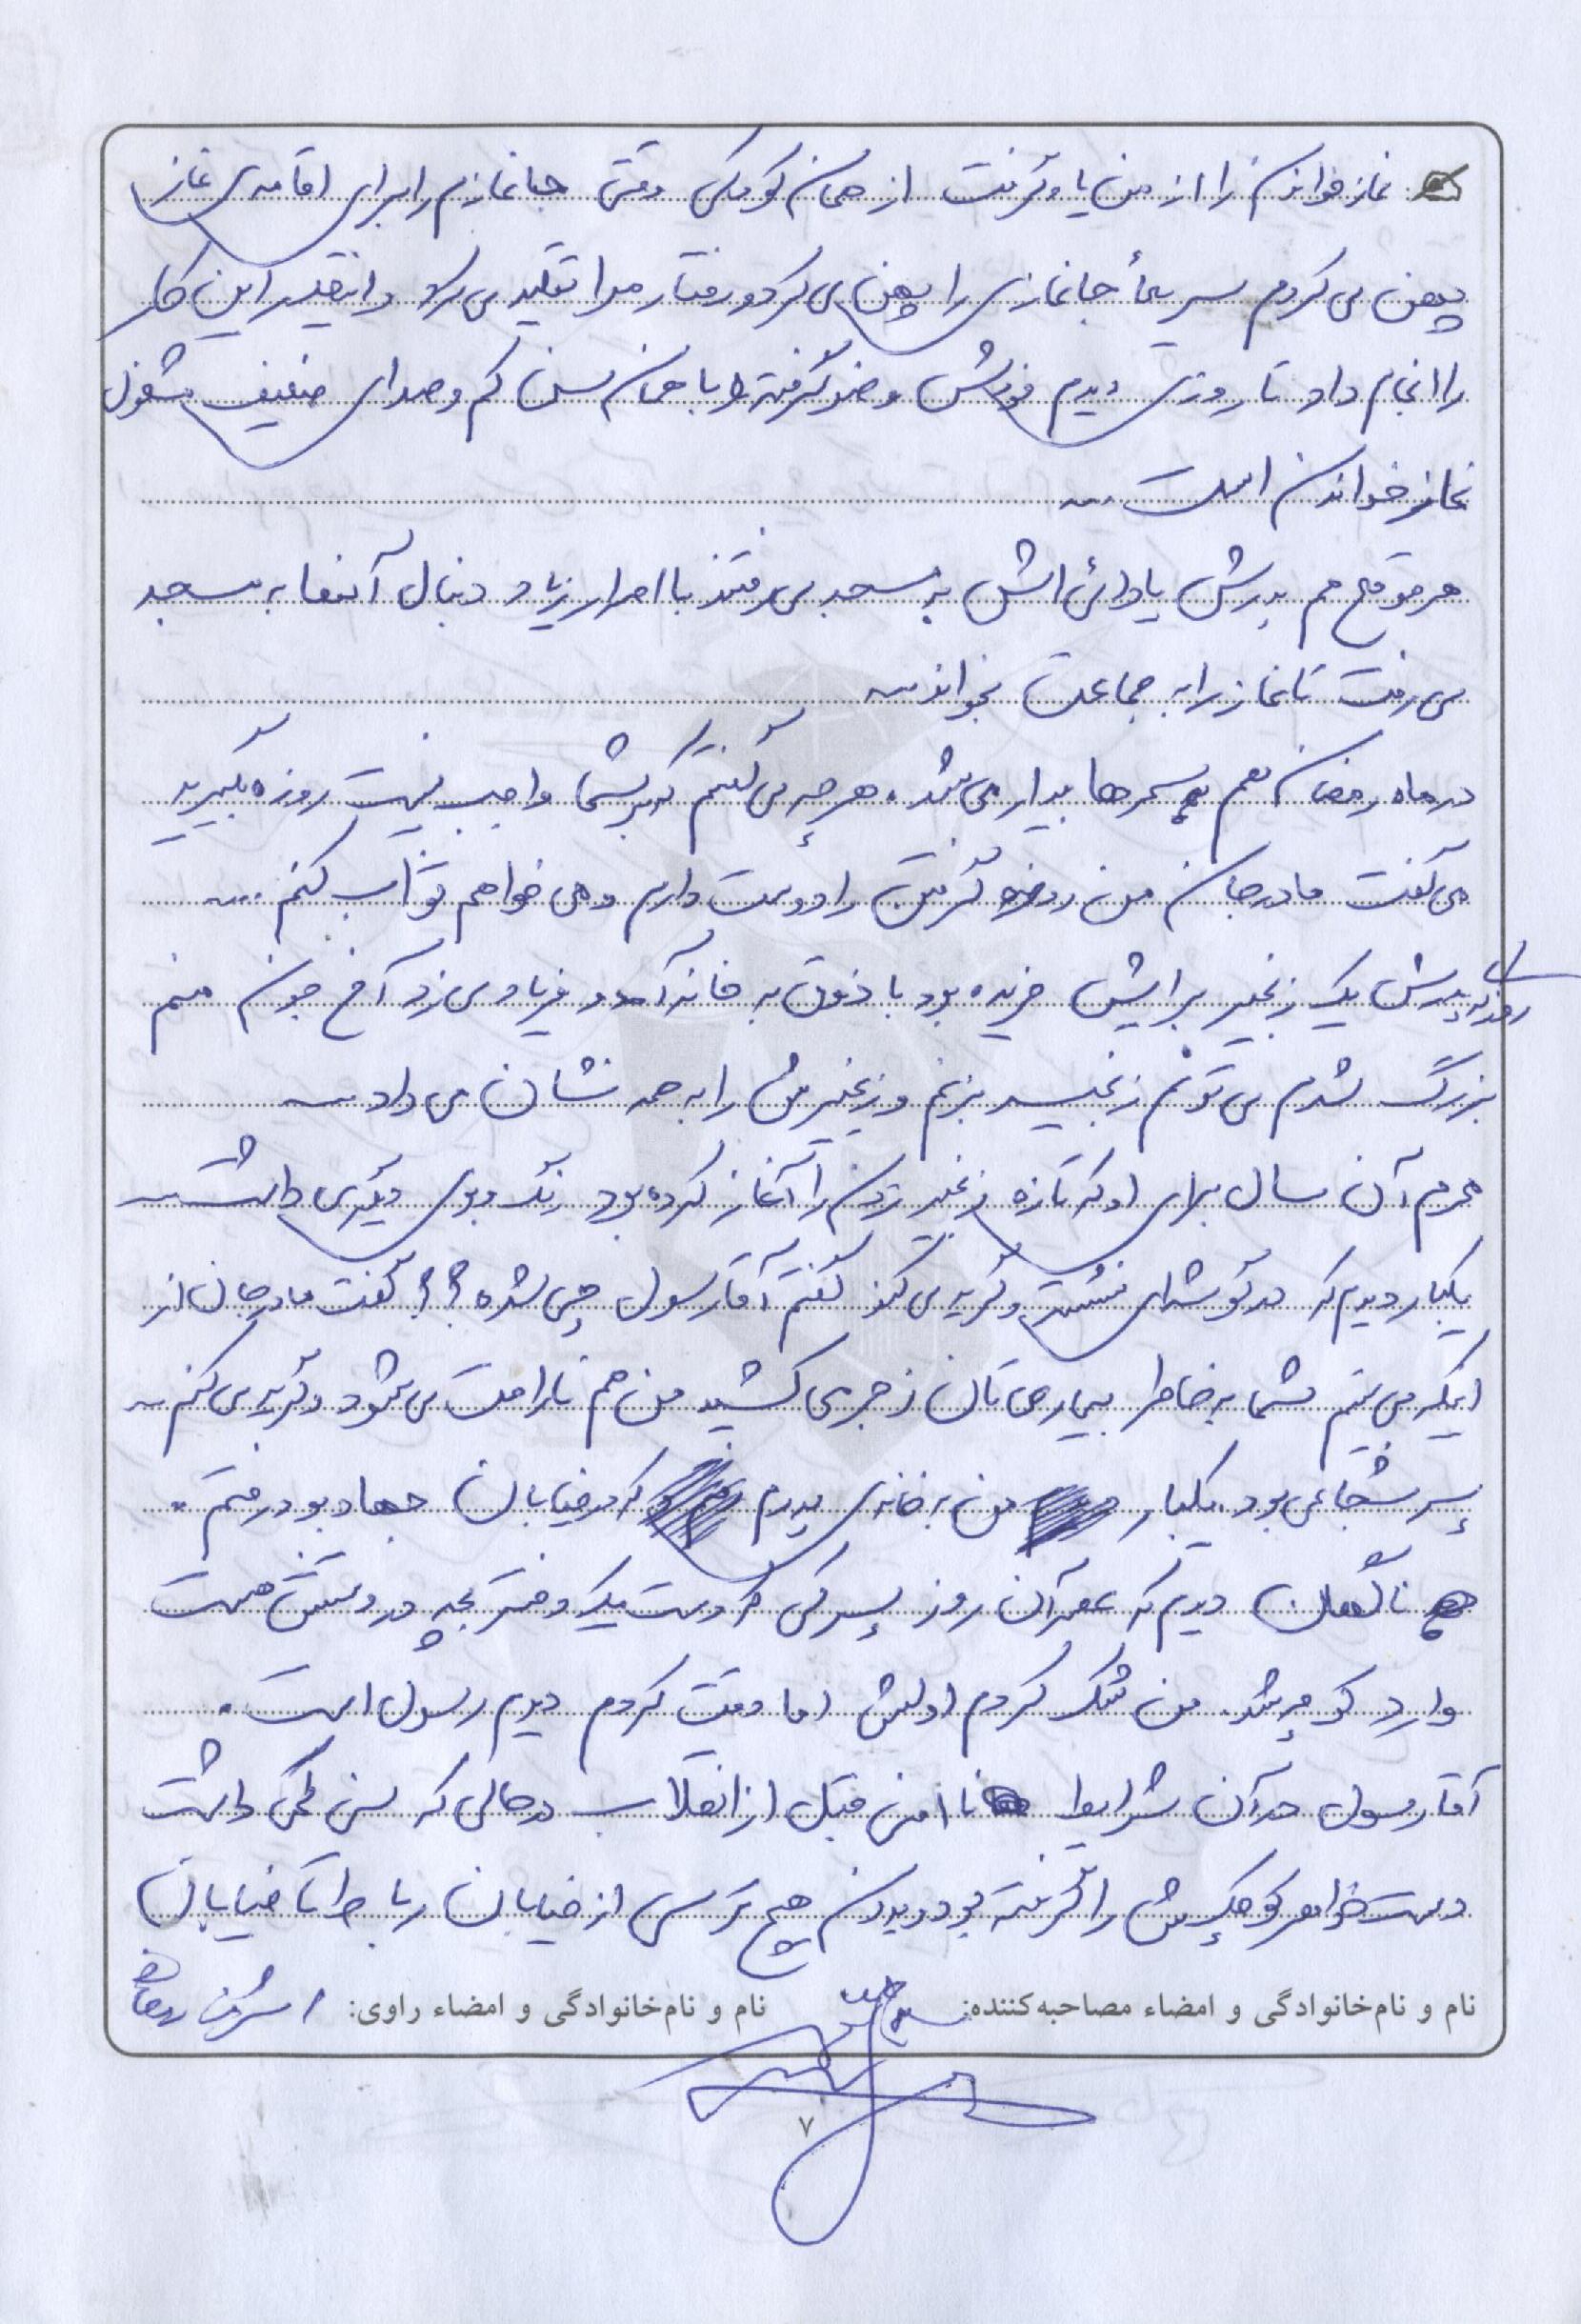 نماز خواندن را از من یاد گرفت از همان کودکی وقتی جانمازم را برای اقامه‌ی نماز
پهن می کردم سریعاً جانمازی را پهن می کرد و رفتار مرا تقلید می کرد و اینقدر این کار
را انجام داد تا روزی دیدم خودش وضو گرفته و با همان سن کم و صدای ضعیف مشغول
نماز خواندن است ...
هر موقع هم پدرش یا دائی اش به مسجد می رفتند با اصرار زیاد دنبال آنها به مسجد
می رفت تا نماز را به جماعت بخواند ...
در ماه رمضان هم سحرها بیدار می شد. هر چه می گفتم که بر شما واجب نیست روزه بگیرید
می گفت مادرجان من روزه گرفتن را دوست دارم و می خواهم ثواب کنم ...
روزی که پدرش یک زنجیر برایش خریده بود با ذوق به خانه آمد و فریاد می زد آخ جون منم
بزرگ شدم می تونم زنجیر بزنم و زنجیرش را به همه نشان می داد ...
محرم آن سال برای او که تازه زنجیر زدن را آغاز کرده بود رنگ و بوی دیگری داشت ...
یکبار دیدم که در گوشه‌ای نشسته و گریه می کند گفتم آقا رسول چی شده؟؟ گفت مادرجان از
اینکه می بینم شما به خاطر بیماری تان زجر می کشید من هم ناراحت می شود و گریه می کنم ...
پسر شجاعی بود. یکبار من به خانه‌ی پدرم که در خیابان جهاد بود رفتم.
ناگهان دیدم که عصر آن روز پسرکی که دست یک دختر بچه در دستش هست
وارد کوچه شد. من شک کردم اولش اما دقت کردم دیدم رسول است.
آقا رسول در آن شرایط نا امن قبل از انقلاب در حالی که سن کمی داشت
دست خواهر کوچکش را گرفته بود و بدون هیچ ترسی از خیابان رباط تا خیابان
نام و نام‌خانوادگی و امضاء مصاحبه‌کننده: نام و نام‌خانوادگی و امضاء راوی: اشرف
۷